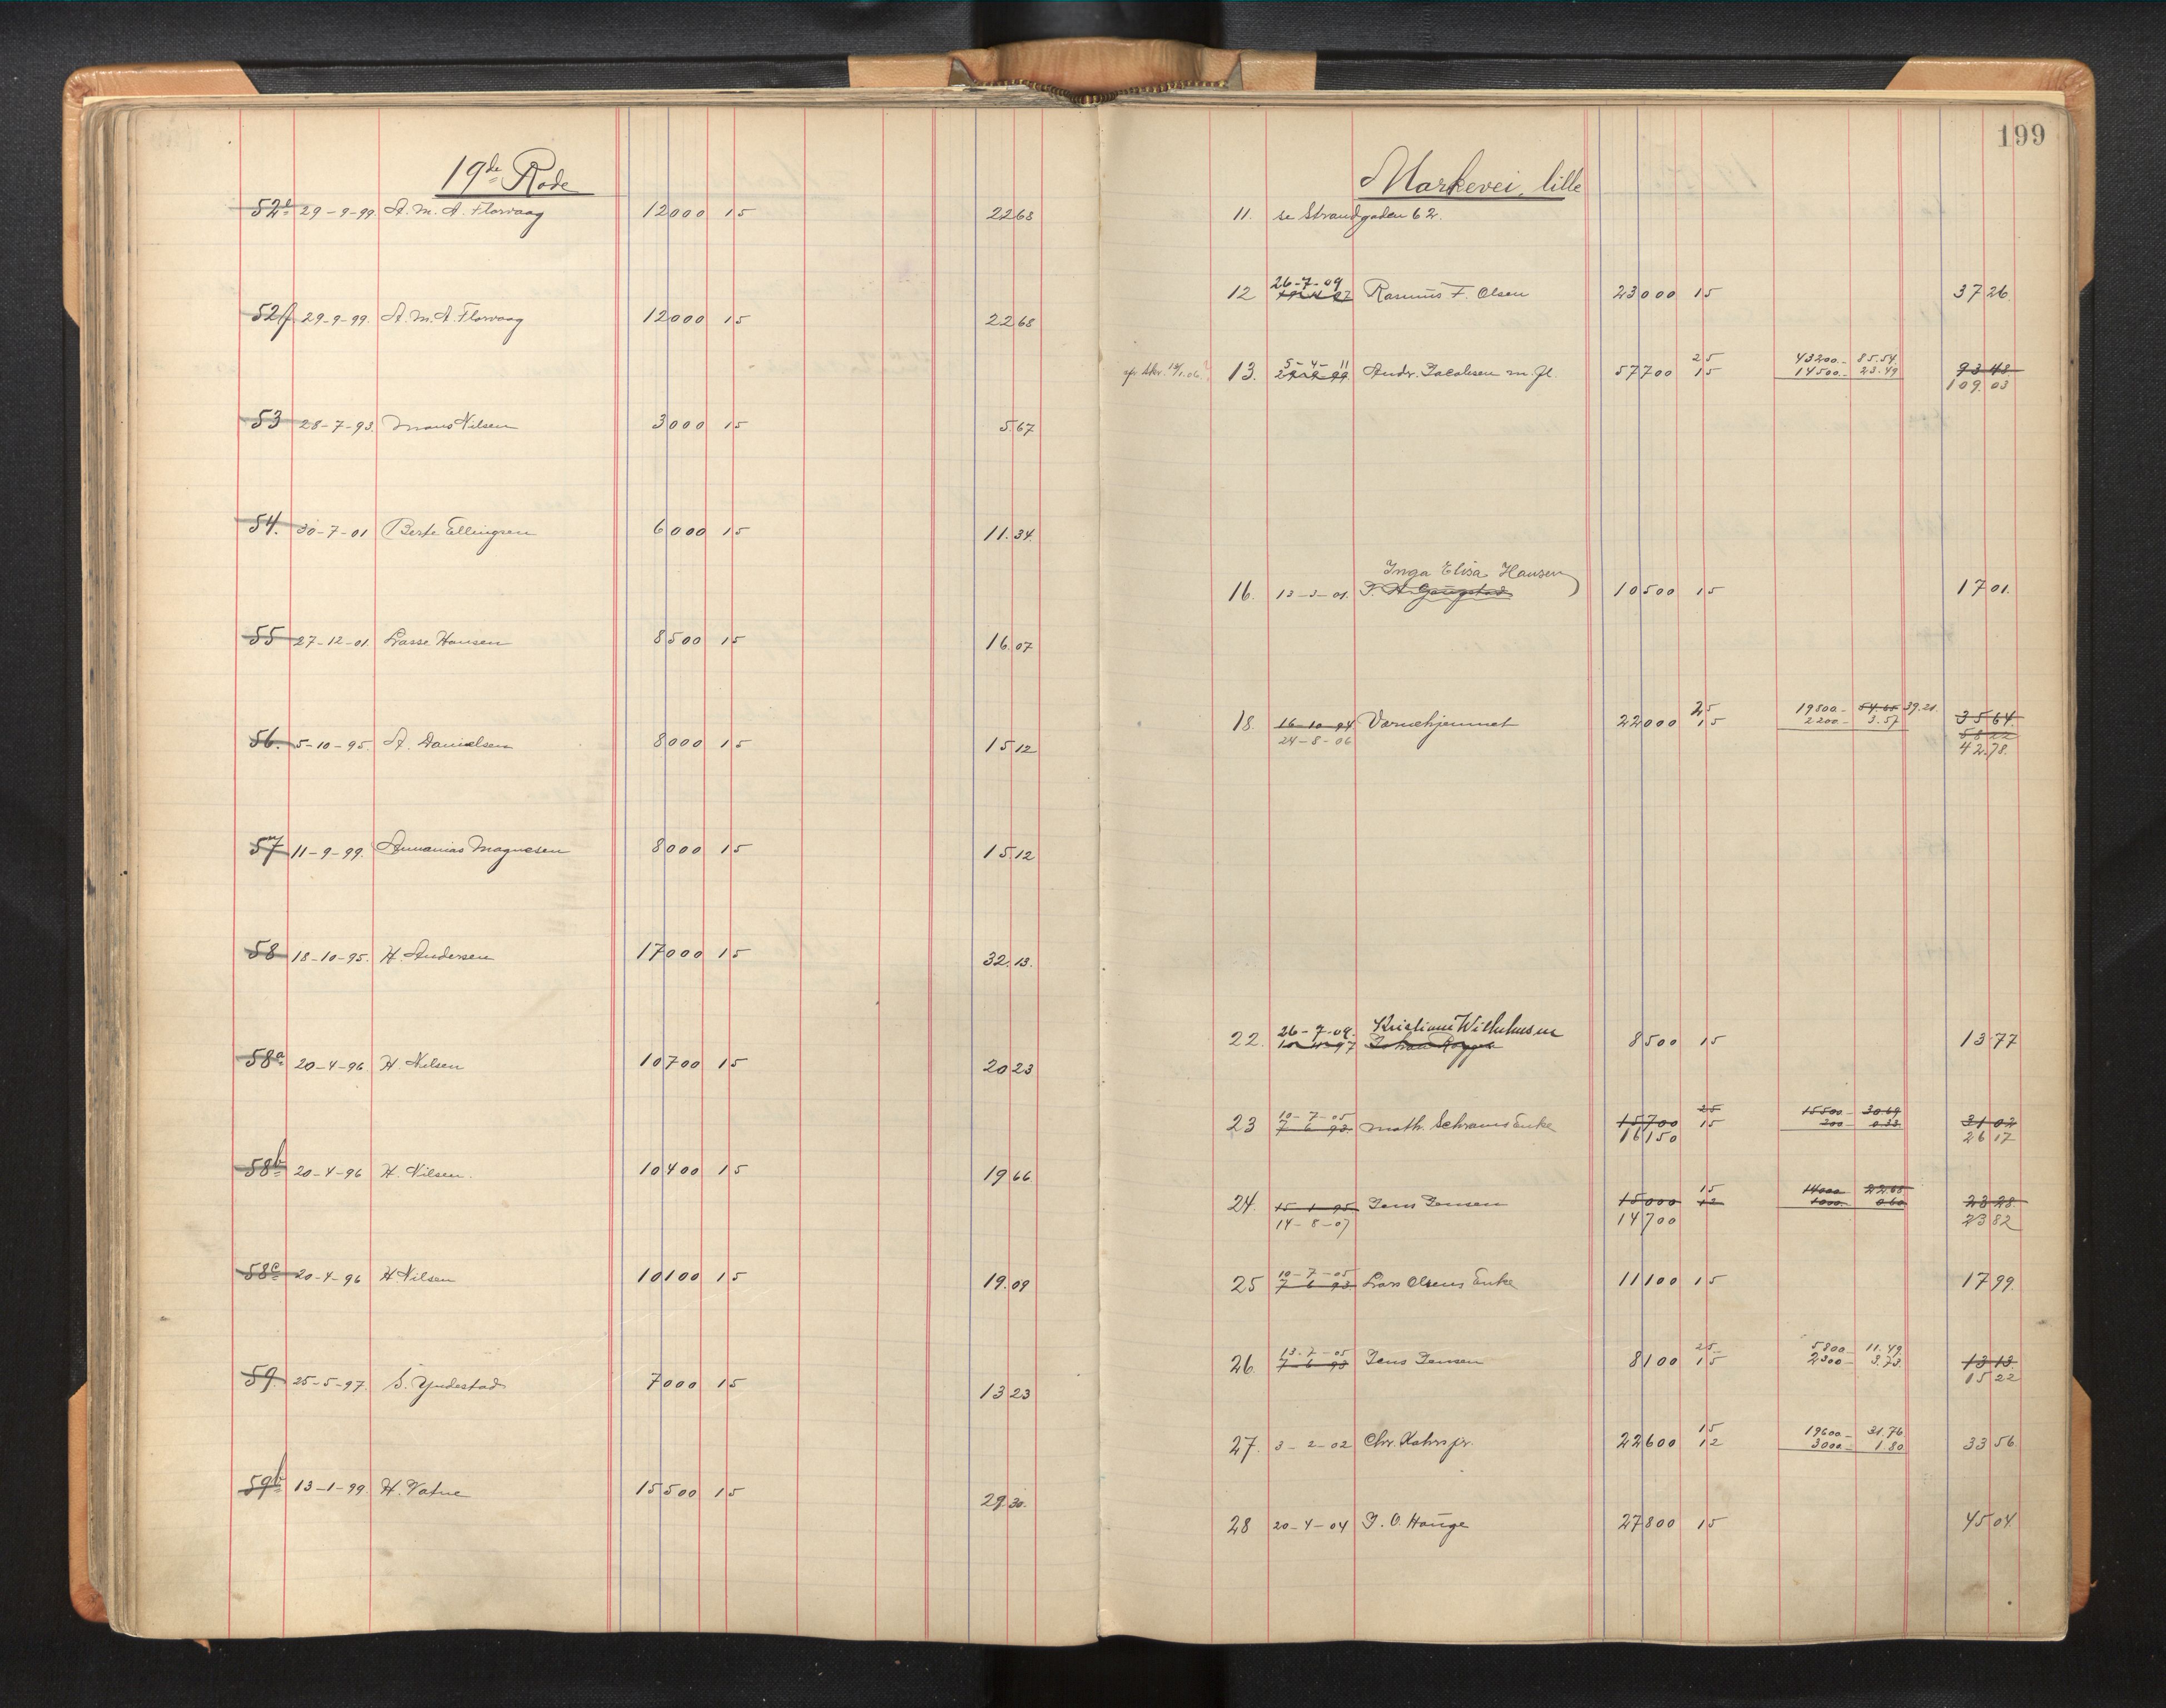 19de Rode
52e 29-9-99. A. M. A. Florvaag 12000 15 22 68
52f 29-9-99. A. M. A. Florvaag 12000 15 22 68
53 28-7-93. Mons Nilsen 3000 15 5.67
54. 30-7-01 Berte Ellingsen 6000 15 11.34
55 27-12-01. Lasse Hansen 8500 15 16.07
56. 5-10-95. A. Danielsen 8000 15 15 12
57 11-9-99. Annanias Magnesen 8000 15 15 12
58 18-10-95. H. Andersen 17000 15 32.13.
58a 20-4-96 H. Nilsen 10700 15 20 23
58b 20-4-96 H. Nilsen. 10400 15 19 66
58c 20-4-96 H. Nilsen 10100 15 19.09
59. 25-5-97. S. Yndestad 7000 15 13 23
59b 13-1-99. H. Vatne 15500 15 29 30.
199
Markevei, lille
11. se Strandgaden 62.
26-7-09
12 Rasmus F. Olsen 23000 15 37 26.
5-4-11 25 43200.- 85.54.
13. Andr. Jacobsen m. fl. 57700 15 14500.- 23.49 93 48.
109. 03
Inga Elisa Hansen
16. 13-3-01. 10500 15 17 01.
25 19800.- 54.65 39.21.
18. 16-10-94 Varnehjemmet 22000 15 2200.- 3.57 35 64.
24-8-06 58 22
42.78.
26-7-09. Kristiane Wilhelmsen
22. 8500 15 13 77
10-7-05 25 15500.- 30.69
23 7-6-93 Math. Schrams Enke 15700 15 200- 0.33 31 02
16150 26 17
15 14000 22.68
24. 15-1-95. Jens Jensen 15000 12 1000. 0.60 23 28.
14-8-07 14700 23 82
10-7-05
25 7-6-93. Lars Olsens Enke 11100 15 17 99.
13-7-05 25 5800- 11.49
26. 7-6-93 Jens Jensen 8100 15 2300- 3.73. 13 13.
15 22
15 19600- 31.76
27. 3-2-02 Chr. Kahrs jr. 22600 12 3000- 1.80 33 56
28 20-4-04 J. O. Hauge 27800 15 45 04.